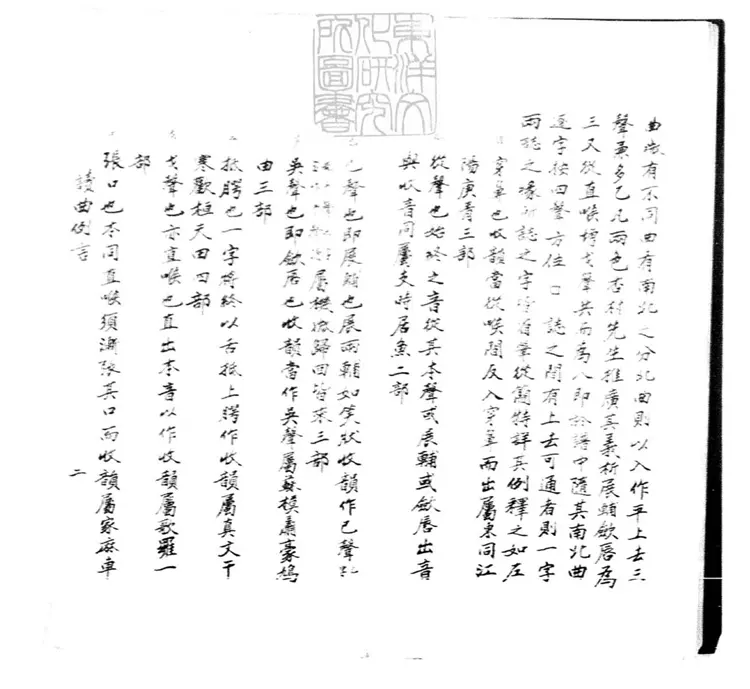 曲時有不同曲有南北之分北曲則以入作平上去三
聲兼多乙凡兩色李村先生推廣其義析展輔歛唇為
三又從直喉增戈聲共而為八即於譜中隨其南北曲
逐字按四聲方位 口 誌之間有上去可通者則一字
兩誌之緣所誌之字皆省筆從簡特詳其例釋之如左
穿鼻也收韻當從喉間反入穿鼻而出屬東同江
陽庚青三部
從聲也始終之音從其本聲或展輔或歛唇出音
與收音同屬支時居魚二部
已聲也即展輔也展兩輔如笑狀收韻作已聲
屬機微歸回皆來三部
吳聲也即歛唇也收韻當作吳聲屬蘇模蕭豪鳩
由三部
抵腭也一字將終以舌抵上腭作收韻屬真文干
寒歡桓天田四部
戈聲也亦直喉也直出本音以作收韻屬歌羅一
部
張口也本同直喉須漸張其口而收韻屬家麻車
讀曲例言
二
東洋文化研究所圖書